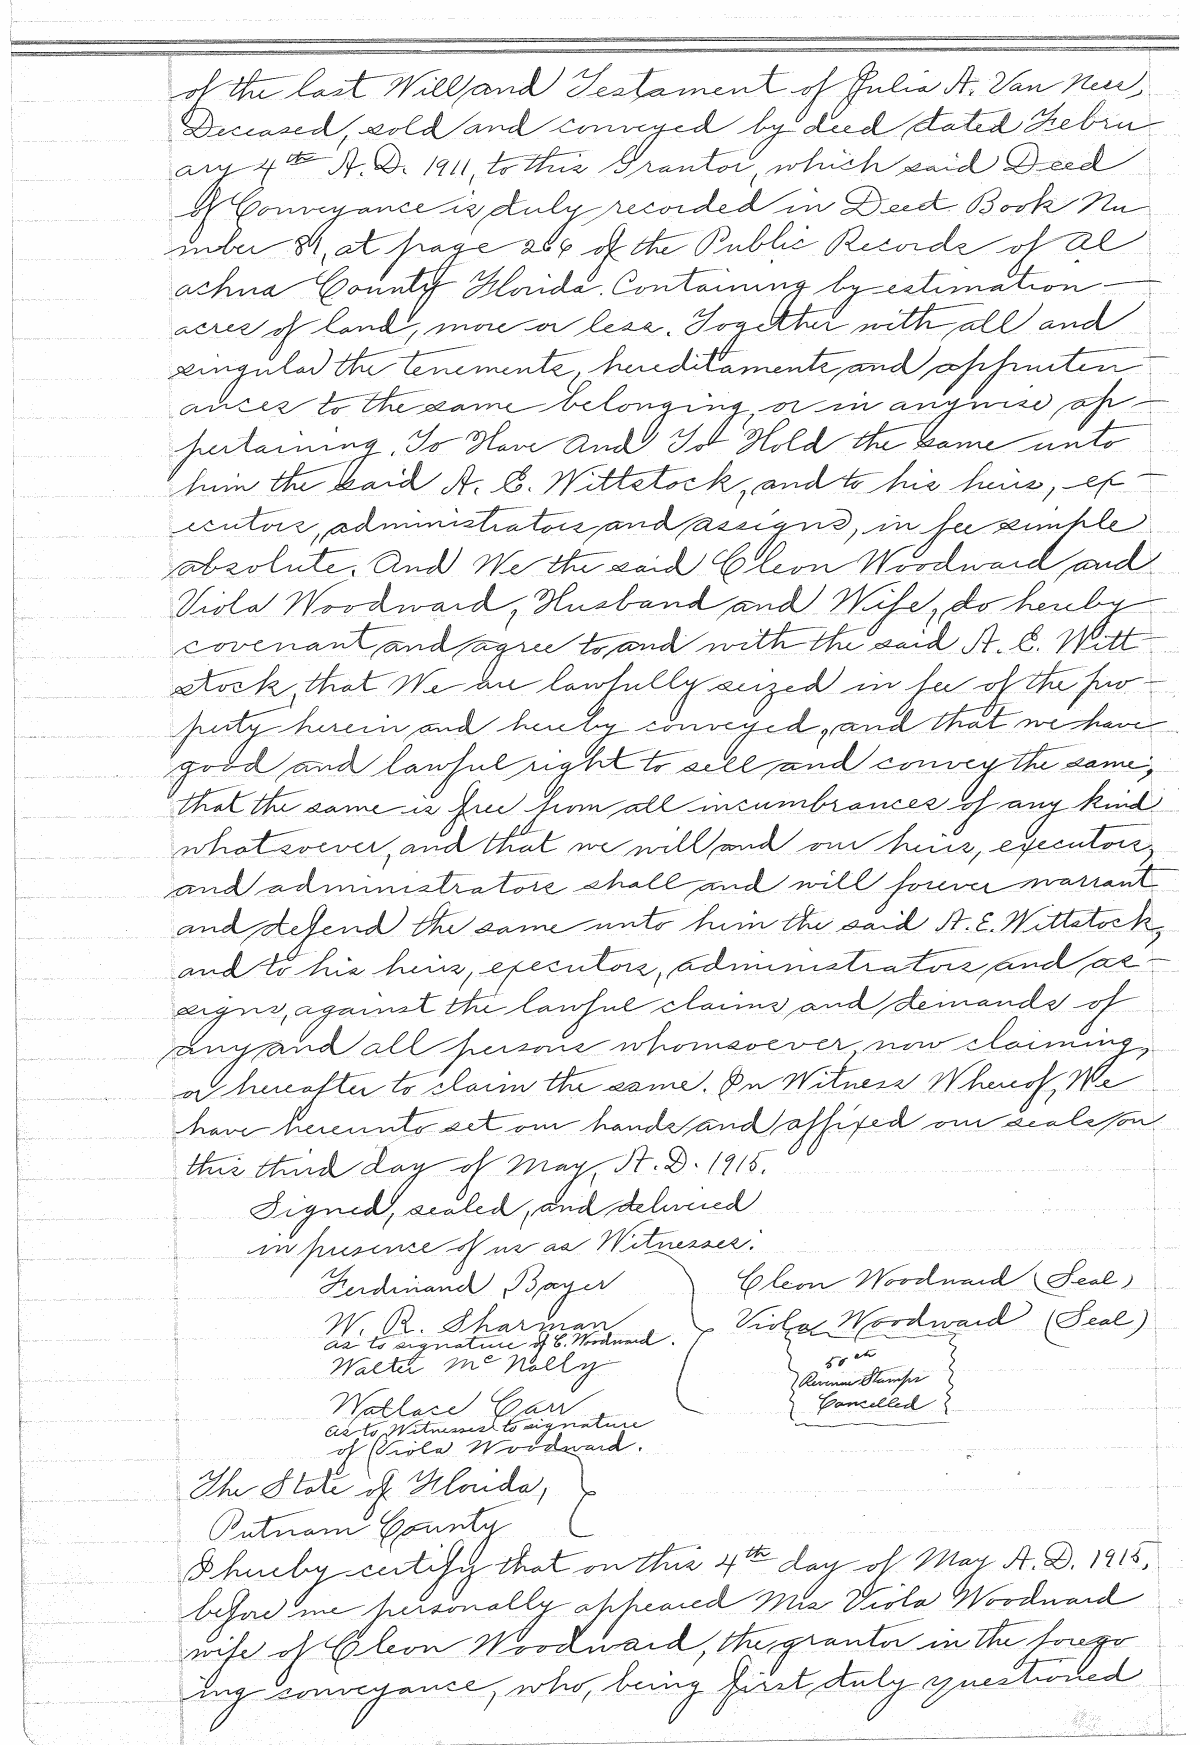 of the last Will and Testament of Julia A. Van Ness,
Deceased, sold and conveyed by deed dated Febru
ary 4th A. D. 1911, to this Grantor, which said Deed
of Conveyance is duly recorded in Deed Book Nu
mber 81, at page 266 of the Public Records of Al
achua County Florida. Containing by estimation —
acres of land, more or less. Together with all and
singular the tenements, hereditaments and appurten
ances to the same belonging, or in anywise ap —
pertaining. To Have And To Hold the same unto
him the said A. E. Wittstock, and to his heirs, ex —
ecutors, administrators and assigns, in fee simple
absolute. And We the said Cleon Woodward and
Viola Woodward, Husband and Wife, do hereby
covenant and agree to and with the said A. E. Witt
stock, that We are lawfully seized in fee of the pro —
perty herein and hereby conveyed, and that we have
good and lawful right to sell and convey the same,
that the same is free from all incumbrances of any kind
whatsoever, and that we will and our heirs, executors,
and administrators shall and will forever warrant
and defend the same unto him the said A. E. Wittstock,
and to his heirs, executors, administrators and as —
signs, against the lawful claims and demands of
any and all persons whomsoever, now claiming,
or hereafter to claim the same. In Witness Whereof, We
have hereunto set our hands and affixed our seals on
this third day of May, A. D. 1915.
Signed, sealed, and delivered
in presence of us as Witnesses:
Ferdinand Bayer Cleon Woodward (Seal)
W. R. Sharman Viola Woodward (Seal)
as to signature of C. Woodward.
Walter McNally 50cts
Revenue Stamps
Wallace Carr Cancelled
as to Witnesses to signature
of Viola Woodward.
The State of Florida,
Putnam County
I hereby certify that on this 4th day of May A. D. 1915,
before me personally appeared Mrs Viola Woodward
wife of Cleon Woodward, the grantor in the forego
ing conveyance, who, being first duly questioned